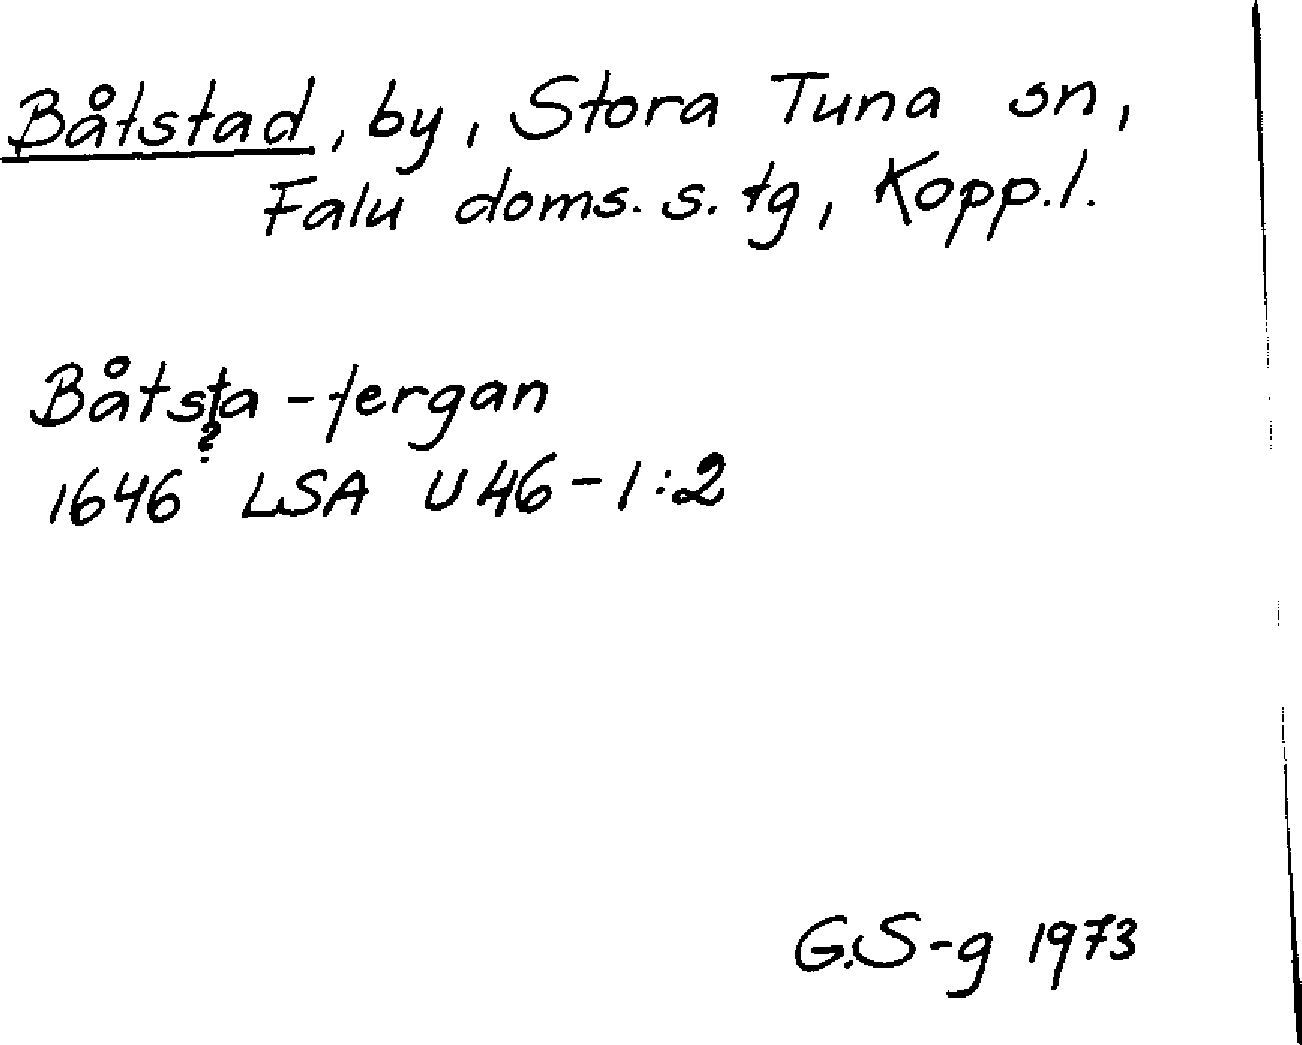 Båtstad, by, Stora Tuna sn,
Falu doms. s. tg, Kopp. l.
Båtsta - fergan
?
1646 LSA U 46 - 1:2
G.S-g 1973